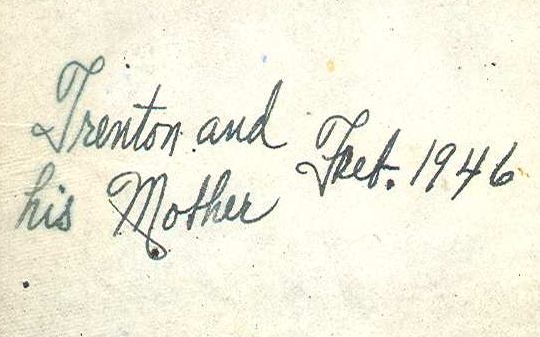 Trenton and
his Mother
Feb. 1946